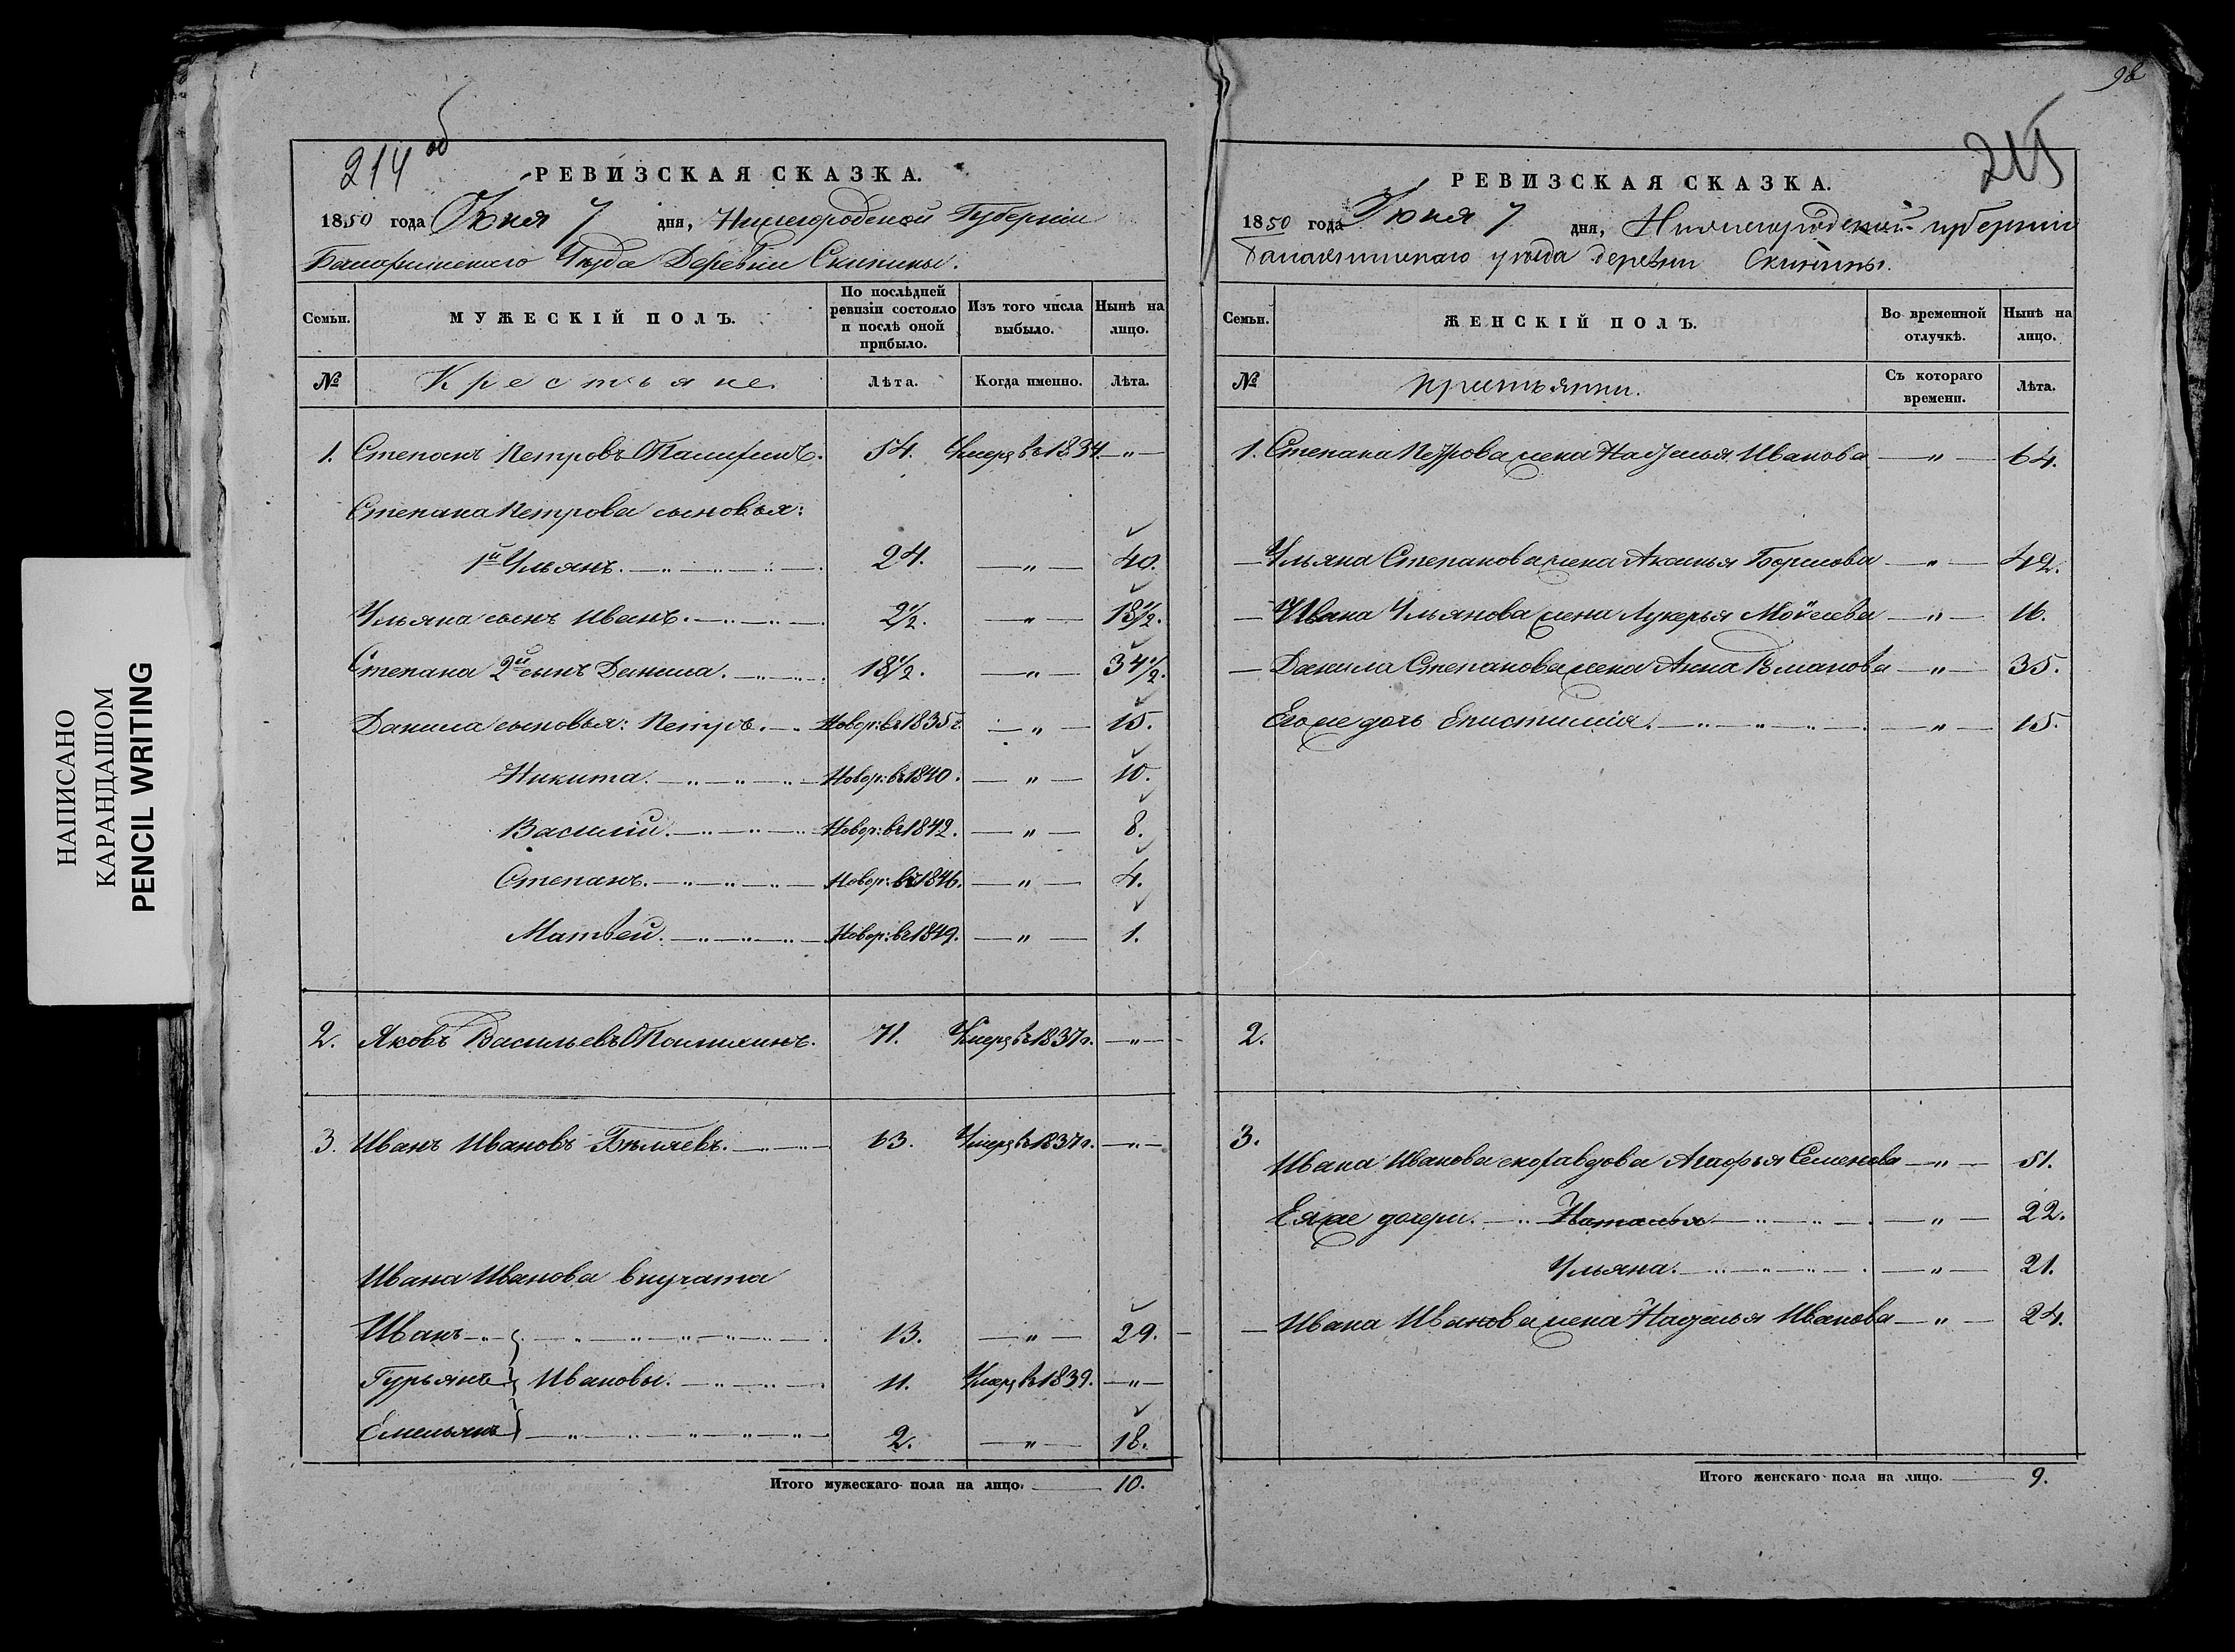 НАПИСАНО
КАРАНДАШОМ
PENCIL WRITING
214 об
РЕВИЗСКАЯ СКАЗКА.
1850 года Июня 7 дня, Нижегородской Губернiи
Балахнинскаго Уѣзда Деревни Скипины.
Семьи. МУЖЕСКIЙ ПОЛЪ. По послѣдней ревизiи состояло и послѣ оной прибыло. Изъ того числа выбыло. Нынѣ на лицо.
№ Крестьяне. Лѣта. Когда именно. Лѣта.
1. Степанъ Петровъ 54. Умеръ въ 1834. — " —
Степана Петрова сыновья:
1й Ульянъ. 24. — " — 40.
Ульяна сынъ Иванъ. 2 1/2. — " — 18 1/2.
Степана 2й сынъ Данила. 18 1/2. — " — 34 1/2.
Данила сыновья: Петръ. Новор: въ 1835 г. — " — 15.
Никита. Новор: въ 1840. — " — 10.
Василiй. Новор: въ 1842. — " — 8.
Степанъ. Новор: въ 1846. — " — 4.
Матвей. Новор: въ 1849. — " — 1.
2. Яковъ Васильевъ 71. Умеръ въ 1837 г. — " —
3. Иванъ Ивановъ Бѣляевъ. 63. Умеръ въ 1837 г. — " —
Ивана Иванова внучата
Иванъ 13. — " — 29.
Гурьянъ } Ивановы. 11. Умеръ въ 1839. — " —
Емельянъ 2. — " — 18.
Итого мужескаго пола на лицо. 10.
98
215
РЕВИЗСКАЯ СКАЗКА.
1850 года Июня 7 дня, Нижегородской губернiи
Балахнинскаго уѣзда деревни Скипины.
Семьи. ЖЕНСКIЙ ПОЛЪ. Во временной отлучкѣ. Нынѣ на лицо.
№ Съ котораго времени. Лѣта.
1. Степана Петрова жена Наталья Иванова — " — 64.
— Ульяна Степанова жена Аксинья Борисова — " — 42.
— Ивана Ульянова жена Лукерья Моисеева — " — 16.
— Данила Степанова жена Анна Романова — " — 35.
Его же дочь Епистимiя. — " — 15.
2.
3.
Ивана Иванова вдова Агафья Семенова — " — 51.
Ея же дочери. Наталья — " — 22.
Ульяна. — " — 21.
— Ивана Иванова жена Наталья Иванова — " — 24.
Итого женскаго пола на лицо. 9.